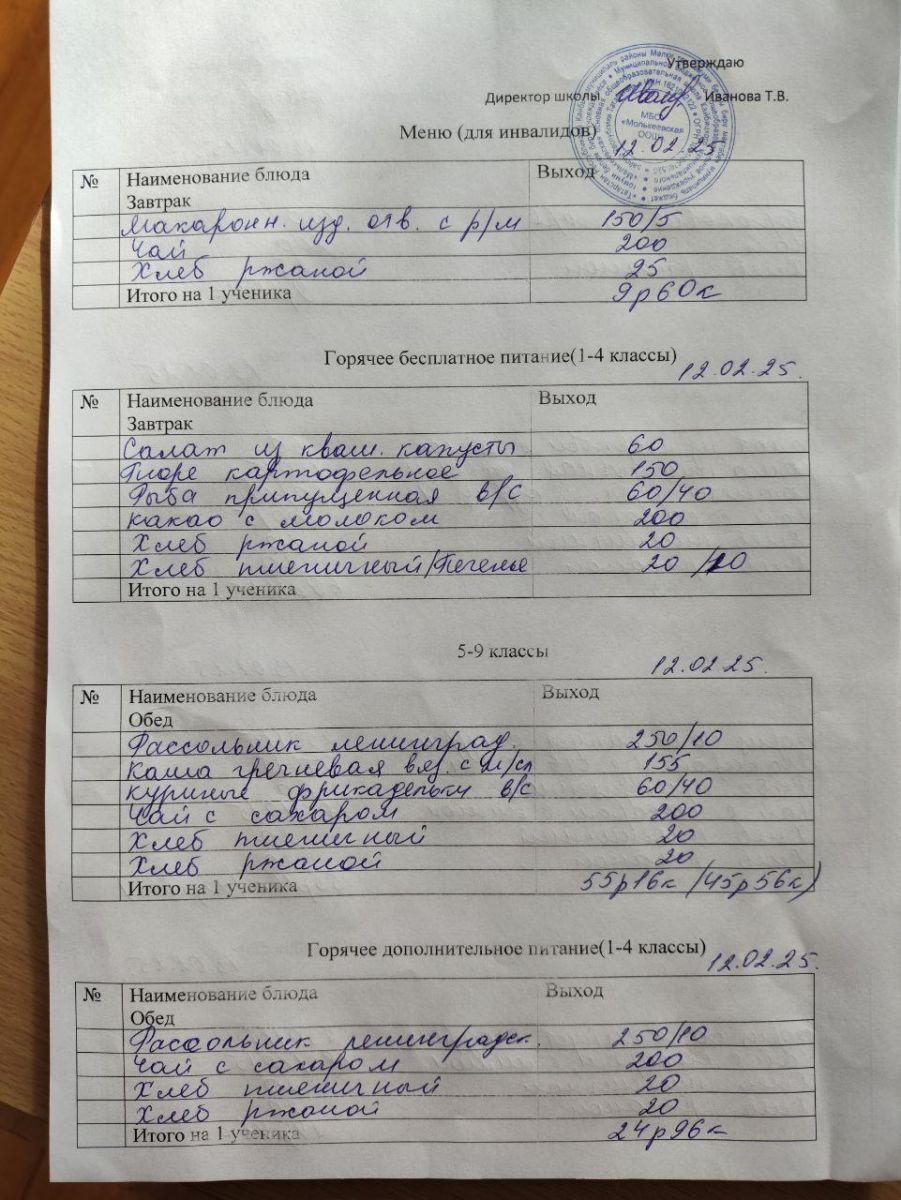 Утверждаю
Директор школы Иванова Т.В.
МБОУ
«Молькеевская
ООШ»
12.02.25
Меню (для инвалидов)
№ Наименование блюда Выход
Завтрак
Макаронн. изд. отв. с р/м 150/5
Чай 200
Хлеб ржаной 25
Итого на 1 ученика 9р60к
Горячее бесплатное питание(1-4 классы)
12.02.25.
№ Наименование блюда Выход
Завтрак
Салат из кваш. капусты 60
Пюре картофельное 150
Рыба припущенная в/с 60/40
Какао с молоком 200
Хлеб ржаной 20
Хлеб пшеничный/Печенье 20 /20
Итого на 1 ученика
5-9 классы
12.02.25.
№ Наименование блюда Выход
Обед
Рассольник ленинград. 250/10
Каша гречневая вяз. с м/сл 155
Куриные фрикадельки в/с 60/40
Чай с сахаром 200
Хлеб пшеничный 20
Хлеб ржаной 20
Итого на 1 ученика 55р16к (45р56к)
Горячее дополнительное питание(1-4 классы)
12.02.25.
№ Наименование блюда Выход
Обед
Рассольник ленинградск. 250/10
Чай с сахаром 200
Хлеб пшеничный 20
Хлеб ржаной 20
Итого на 1 ученика 24р96к